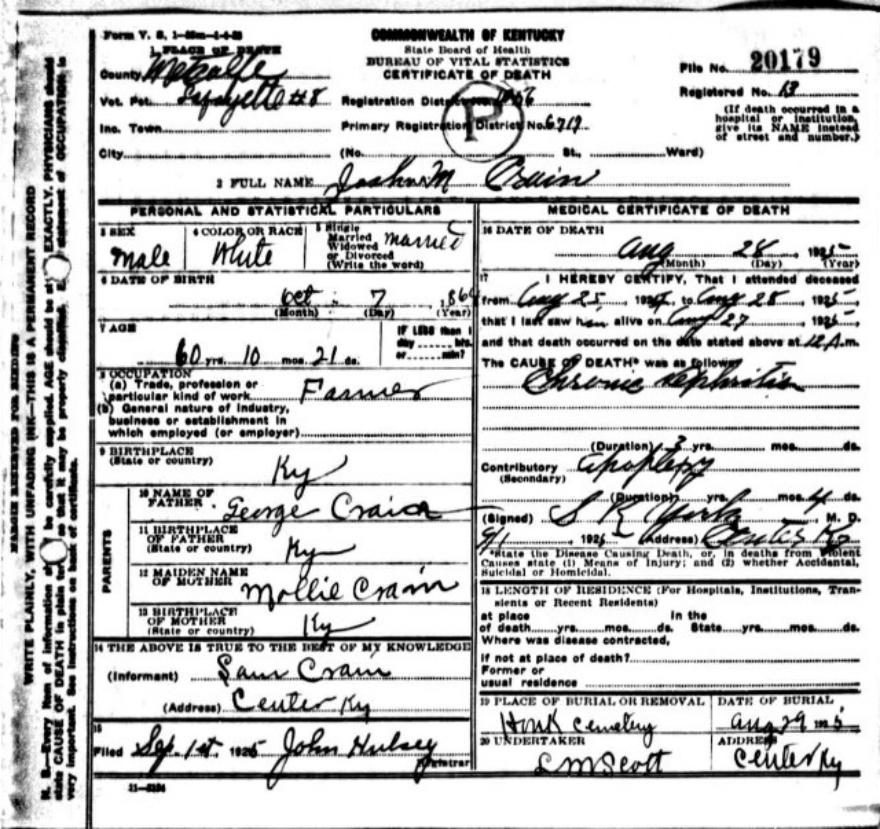 Form V. S. 1-
COMMONWEALTH OF KENTUCKY
State Board of Health
BUREAU OF VITAL STATISTICS
CERTIFICATE OF DEATH
File No. 20179
Registered No. 13
(If death occurred in a hospital or institution, give its NAME instead of street and number.)
1 PLACE OF DEATH
County Metcalfe
Vot. Pct. Lafayette #8 Registration District No.
Inc. Town Primary Registration District No. 6719
P
City (No. St., Ward)
2 FULL NAME M Crain
PERSONAL AND STATISTICAL PARTICULARS
3 SEX
Male
4 COLOR OR RACE
White
5 Single
Married
Widowed
or Divorced
(Write the word)
Married
6 DATE OF BIRTH
Oct 7 186
(Month) (Day) (Year)
7 AGE
60 yrs. 10 mos. 21 ds.
IF LESS than 1
day hrs.
or min?
8 OCCUPATION
(a) Trade, profession or
particular kind of work Farmer
(b) General nature of industry,
business or establishment in
which employed (or employer)
9 BIRTHPLACE
(State or country)
Ky
PARENTS
10 NAME OF
FATHER George Crain
11 BIRTHPLACE
OF FATHER
(State or country) Ky
12 MAIDEN NAME
OF MOTHER Mollie Crain
13 BIRTHPLACE
OF MOTHER
(State or country) Ky
14 THE ABOVE IS TRUE TO THE BEST OF MY KNOWLEDGE
(Informant) Sam Crain
(Address) Center Ky
15
Filed Sep. 1st 1925 John Hulsey
Registrar
11-
MEDICAL CERTIFICATE OF DEATH
16 DATE OF DEATH
Aug 28 1925
(Month) (Day) (Year)
17 I HEREBY CERTIFY, That I attended deceased
from Aug 25, 192 to Aug 28, 1925
that I last saw him alive on Aug 27, 1925
and that death occurred on the date stated above at 12 A.m.
The CAUSE OF DEATH* was as follows
Chronic Nephritis
(Duration) 3 yrs. mos. ds.
Contributory Apoplexy
(Secondary)
(Duration) yrs. mos. 4 ds.
(Signed) S K York, M. D.
9/1, 1925 (Address) Center Ky
*State the Disease Causing Death, or, in deaths from Violent
Causes state (1) Means of Injury; and (2) whether Accidental,
Suicidal or Homicidal.
18 LENGTH OF RESIDENCE (For Hospitals, Institutions, Tran-
sients or Recent Residents)
at place In the
of death yrs. mos. ds. State yrs. mos. ds.
Where was disease contracted,
if not at place of death?
Former or
usual residence
19 PLACE OF BURIAL OR REMOVAL
Cemetery
DATE OF BURIAL
Aug 29 1925
20 UNDERTAKER
L M Scott
ADDRESS
Center Ky
MARGIN RESERVED FOR BINDING
WRITE PLAINLY, WITH UNFADING INK—THIS IS A PERMANENT RECORD
N. B.—Every item of information should be carefully supplied. AGE should be stated EXACTLY. PHYSICIANS should
state CAUSE OF DEATH in plain terms, so that it may be properly classified. statement of OCCUPATION is
very important. See instructions on back of certificate.